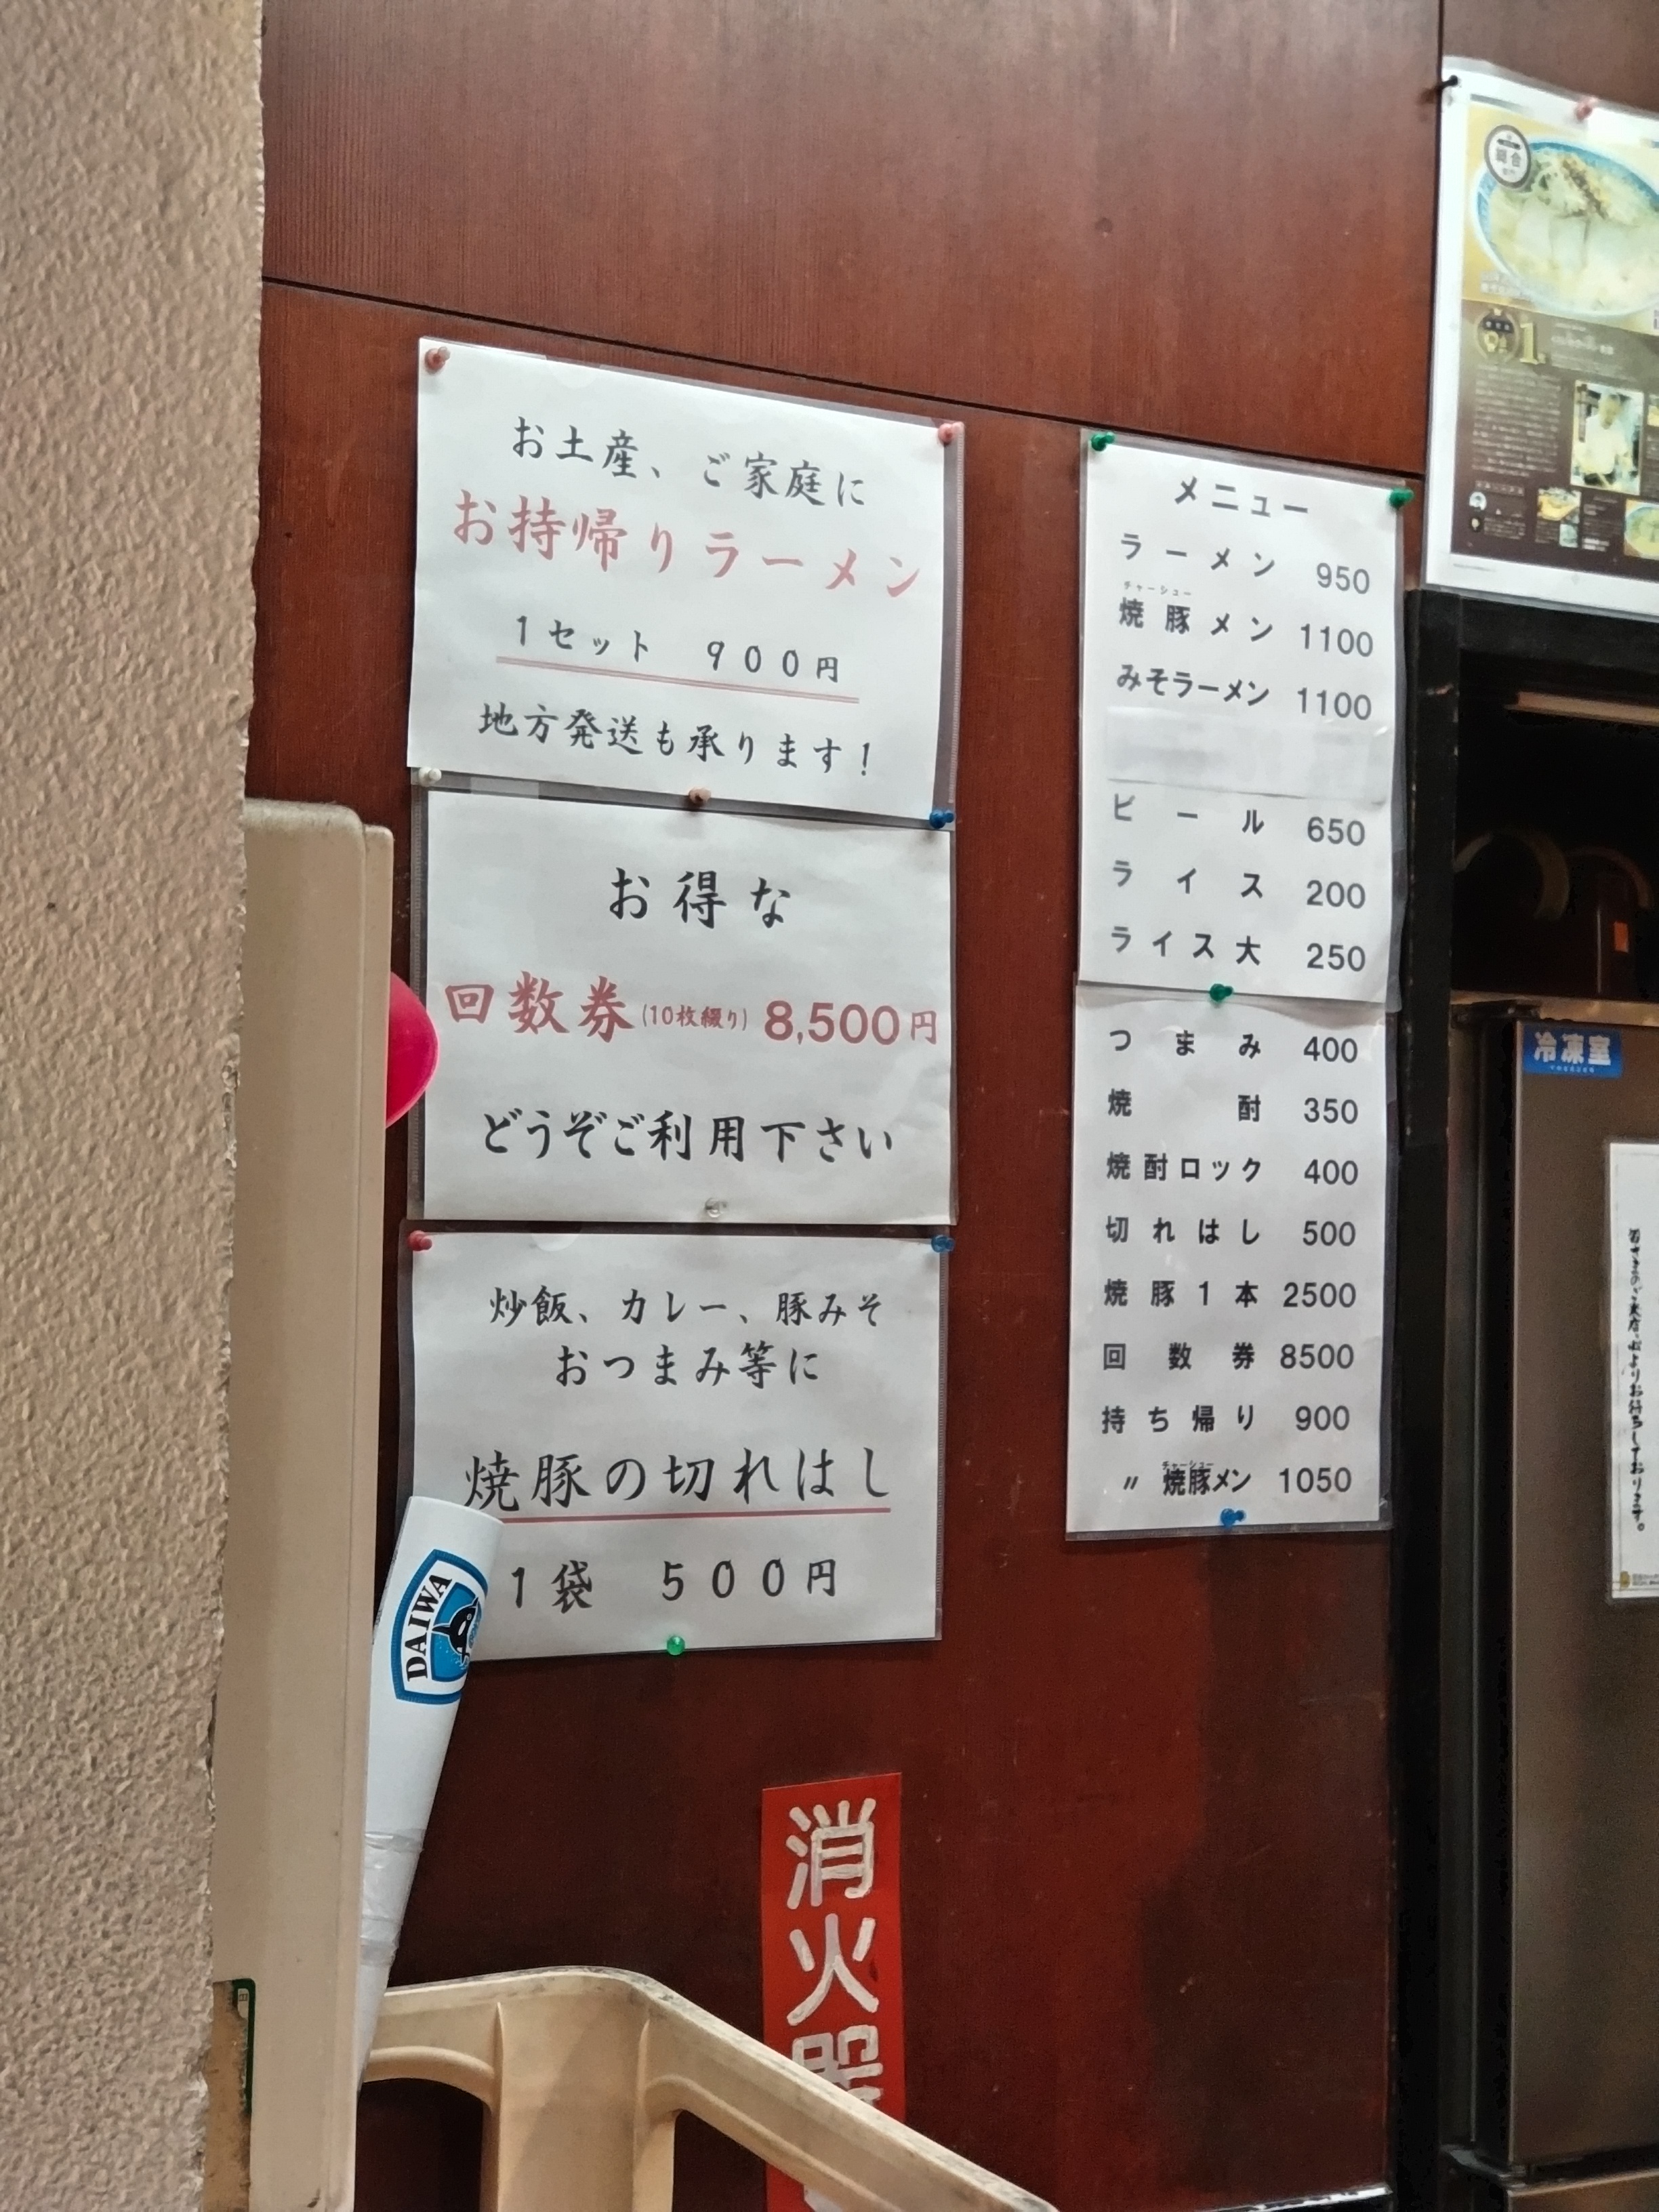 お土産、ご家庭に
お持帰りラーメン
1セット 900円
地方発送も承ります!
お得な
回数券(10枚綴り) 8,500円
どうぞご利用下さい
炒飯、カレー、豚みそ
おつまみ等に
焼豚の切れはし
1袋 500円
DAIWA
メニュー
ラーメン 950
チャーシュー
焼豚メン 1100
みそラーメン 1100
ビール 650
ライス 200
ライス大 250
つまみ 400
焼酎 350
焼酎ロック 400
切れはし 500
焼豚1本 2500
回数券 8500
持ち帰り 900
チャーシュー
〃 焼豚メン 1050
消火器
冷凍室
皆さまのご来店、心よりお待ちしております。